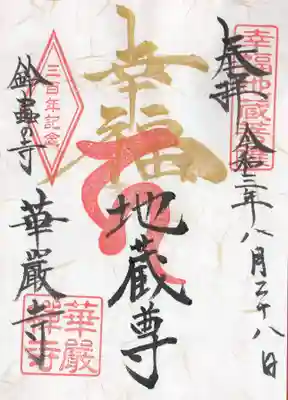 奉拝
幸福地蔵尊
令和三年八月二十八日
幸福
地蔵尊
三百年記念
鈴蟲の寺
華嚴寺
華嚴
禅寺